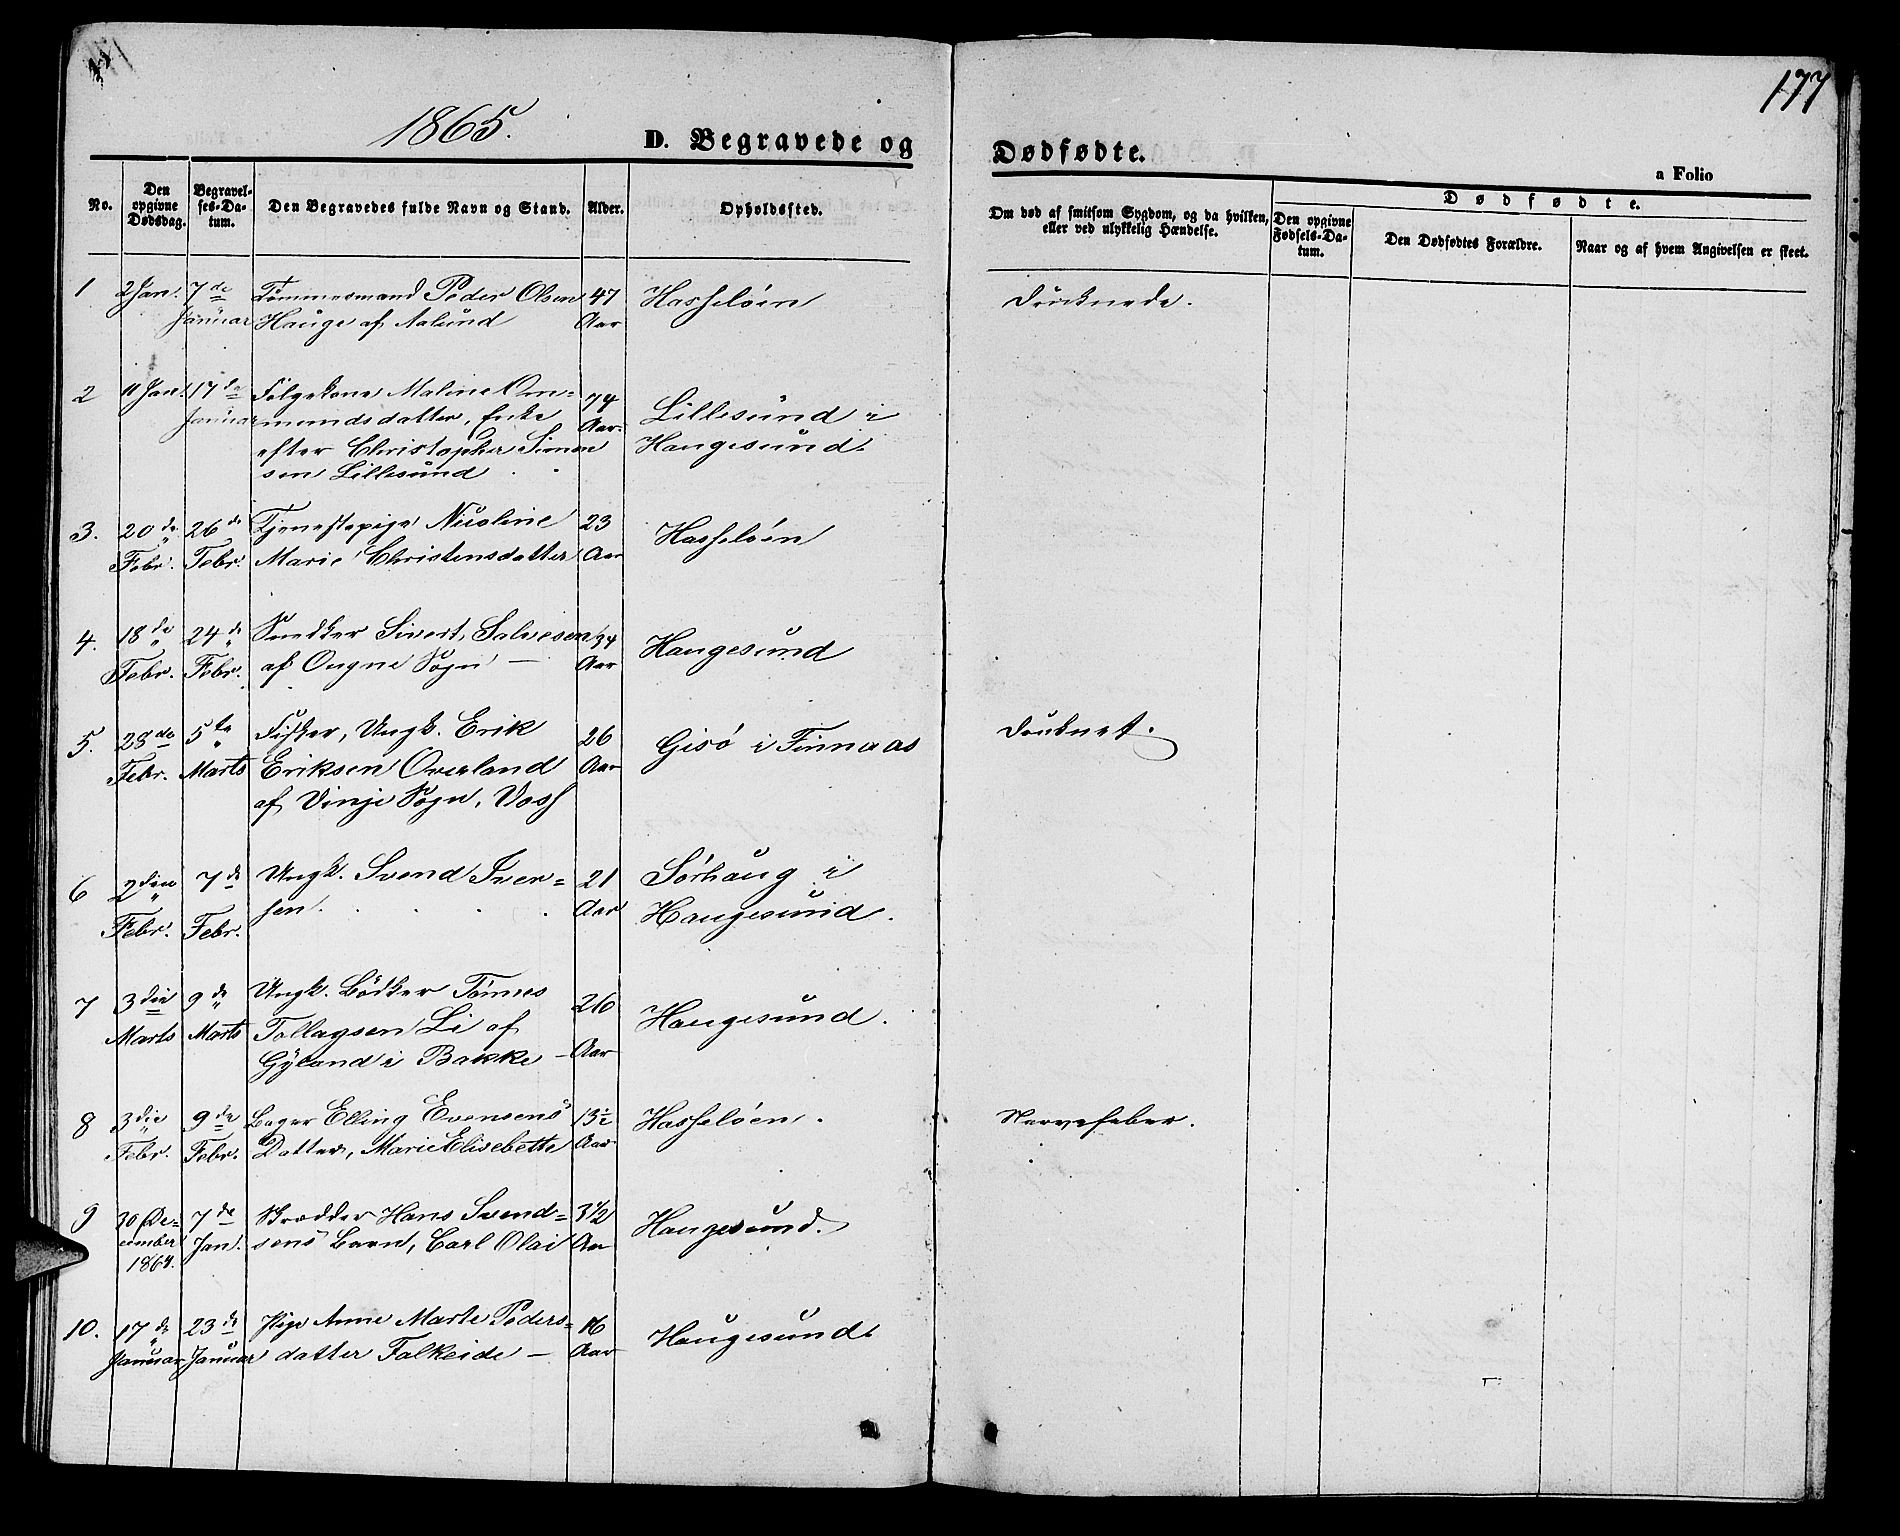 177
1865.
D. Begravede og Dødfødte.
a Folio
No.
Den opgivne Dødsdag.
Begravel-ses-Da-tum.
Den Begravedes fulde Navn og Stand.
Alder.
Opholdssted.
Om død af smitsom Sygdom, og da hvilken, eller ved ulykkelig Hændelse.
Dødfødte.
Den opgivne Fødsels-Da-tum.
Den Dødfødtes Forældre.
Naar og af hvem Angivelsen er skeet.
1 2 Jan. 7de Tømmermand Peder Olsen 47 Hasseløen Druknede.
Januar Hauge af Aalund Aar
2 11 Jan. 17de Følgekone Maline Om= 74 Lillesund i
Januar mundsdatter, Enke Aar Haugesund.
efter Christopher Simon
sen Lillesund
3. 20de 26de Tjenestepige Nicoline 23 Hasseløen
Febr. Febr. Marie Christensdatter Aar
4. 18de 24de Snedker Sivert Salvesen 34 Haugesund
Febr. Febr. af Ougne Sogn — Aar
5. 28de 5te Fisker, Ungk. Erik 26 Gisö i Finnaas Druknet.
Febr. Marts Eriksen Overland Aar
af Vinje Sogn, Voss
6 2den 7de Ungk. Svend Iver= 21 Sørhaug i
Febr. Febr. sen. Aar Haugesund.
7 3die 9de Ungk. Bødker Tønnes 26 Haugesund.
Marts Marts Tollagsen Li af
Gyland i Bakke — Aar
8 3die 9de Bager Elling Evensens 13½ Hasseløen. Nervefeber.
Febr. Febr. Datter, Marie Elisebette Aar
9 30 De= 7de Skrædder Hans Svend= 3½ Haugesund.
cember Jan. sens Barn, Carl Olai Aar
1864.
10. 17de 23de Pige Anne Marte Peders= 16 Haugesund.
Januar Januar datter Falkeide — Aar